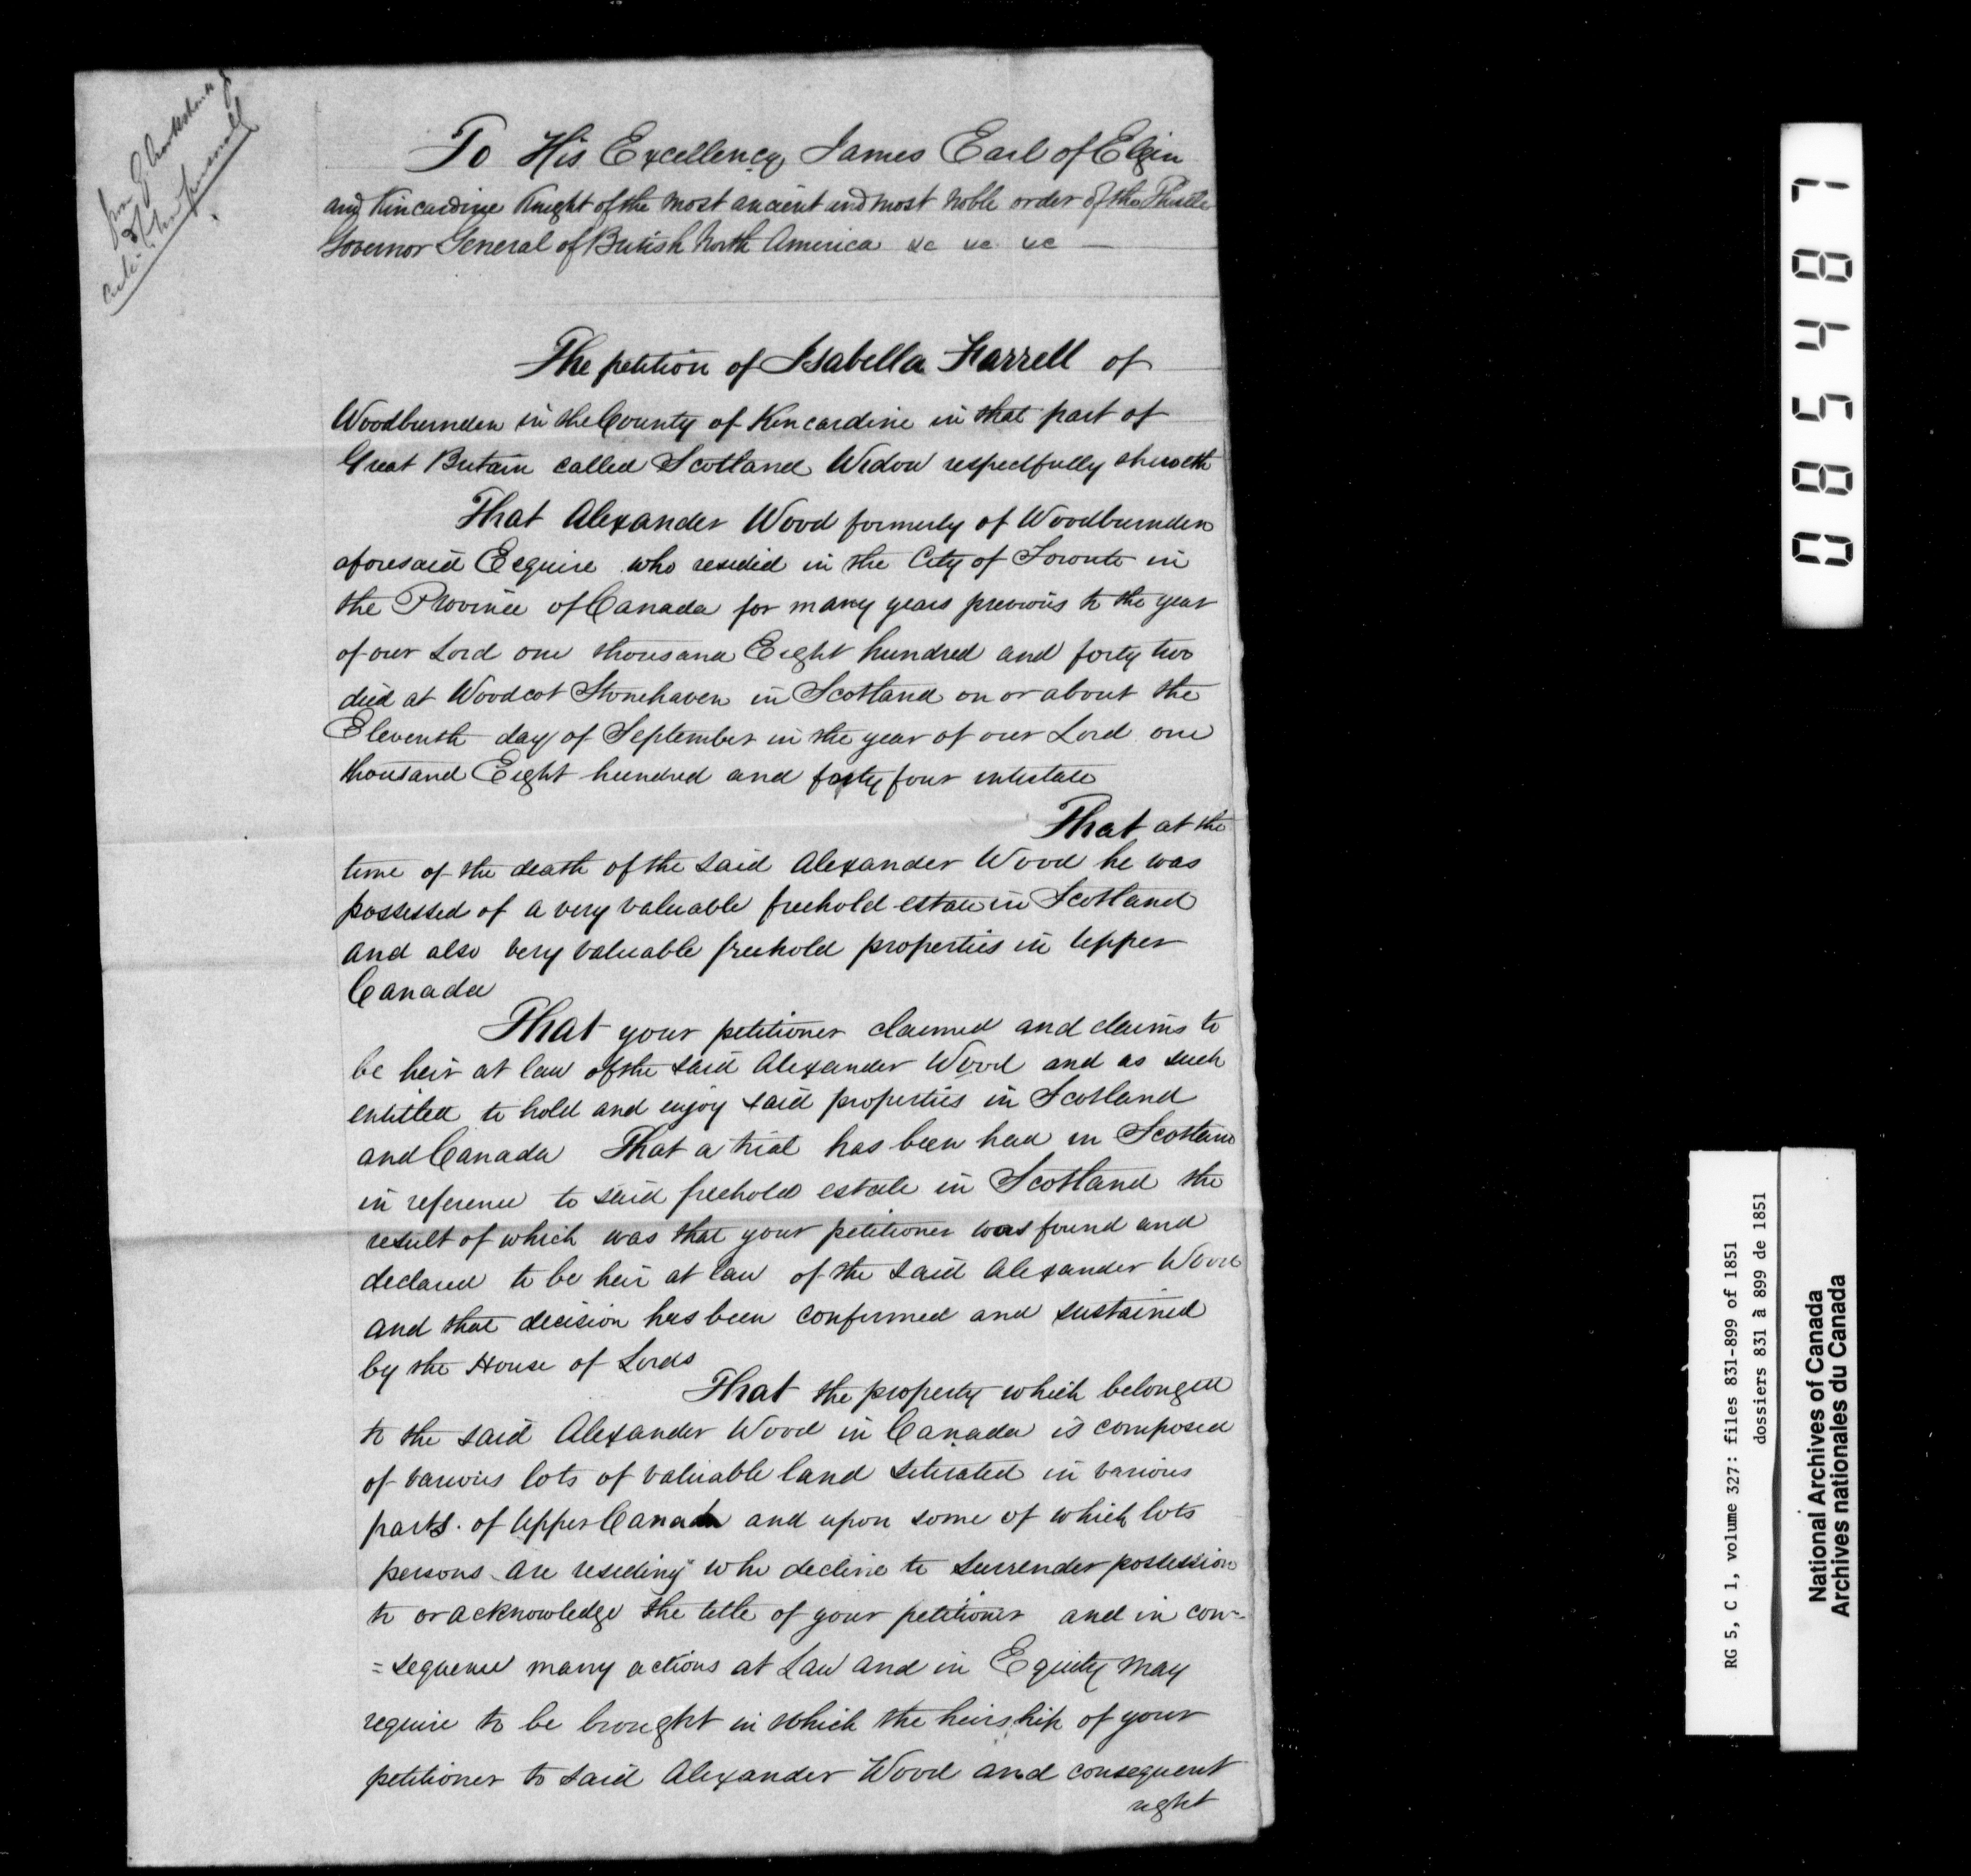 To His Excellency James Earl of Elgin
and Kincardine Knight of the Most ancient and most Noble order of the Thistle
Governor General of British North America &c &c &c —
The petition of Isabella Farrell of
Woodburnden in the County of Kincardine in that part of
Great Britain called Scotland Widow respectfully sheweth
That Alexander Wood formerly of Woodburnden
aforesaid Esquire who resided in the City of Toronto in
the Province of Canada for many years previous to the year
of our Lord one thousand Eight hundred and forty two
died at Woodcot Stonehaven in Scotland on or about the
Eleventh day of September in the year of our Lord one
thousand Eight hundred and forty four intestate
That at the
time of the death of the said Alexander Wood he was
possessed of a very valuable freehold estate in Scotland
and also very valuable freehold properties in Upper
Canada
That your petitioner claimed and claims to
be heir at law of the said Alexander Wood and as such
entitled to hold and enjoy said properties in Scotland
and Canada That a trial has been had in Scotland
in reference to said freehold estate in Scotland the
result of which was that your petitioner was found and
declared to be heir at law of the said Alexander Wood
and that decision has been confirmed and sustained
by the House of Lords
That the property which belonged
to the said Alexander Wood in Canada is composed
of various lots of valuable land situated in various
parts of Upper Canada and upon some of which lots
persons are residing who decline to surrender possession
to or acknowledge the title of your petitioner and in con-
=sequence many actions at Law and in Equity may
require to be brought in which the heirship of your
petitioner to said Alexander Wood and consequent
right
085487
RG 5, C 1, volume 327: files 831-899 of 1851
dossiers 831 à 899 de 1851
National Archives of Canada
Archives nationales du Canada